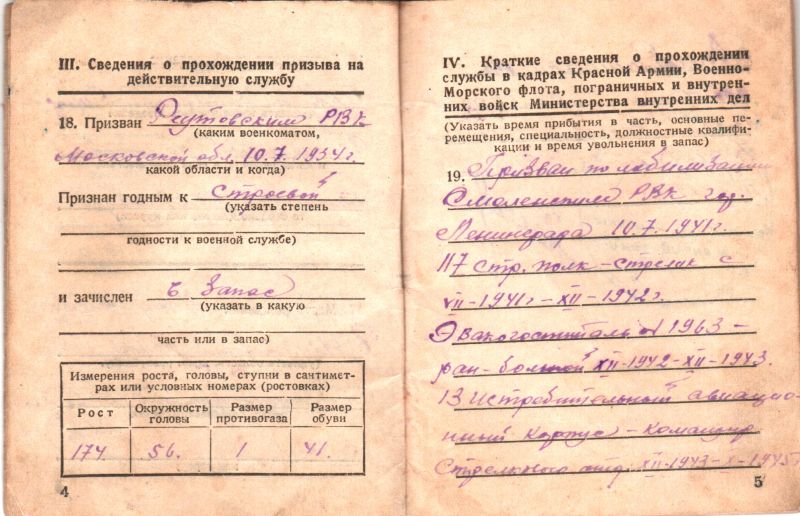 III. Сведения о прохождении призыва на
действительную службу
18. Призван Реутовским РВК
(каким военкоматом,
Московской обл. 10.7.1934г.
какой области и когда)
Признан годным к строевой
(указать степень
годности к военной службе)
и зачислен в запас
(указать в какую
часть или в запас)
Измерения роста, головы, ступни в сантимет-
рах или условных номерах (ростовках)
Рост Окружность головы Размер противогаза Размер обуви
174. 56. 1 41.
4
IV. Краткие сведения о прохождении
службы в кадрах Красной Армии, Военно-
Морского флота, пограничных и внутрен-
них войск Министерства внутренних дел
(Указать время прибытия в часть, основные пе-
ремещения, специальность, должностные квалифи-
кации и время увольнения в запас)
19. Призван по мобилизации
Смоленским РВК гор.
Ленинграда 10.7.1941г.
117 стр. полк - стрелок с
VII-1941г - XII-1942г.
Эвакогоспиталь № 1963 -
ран-больной XII-1942-XII-1943.
13 Истребительный авиацио-
нный корпус - Командир
стрелкового отд. XII-1943-X-1945г
5